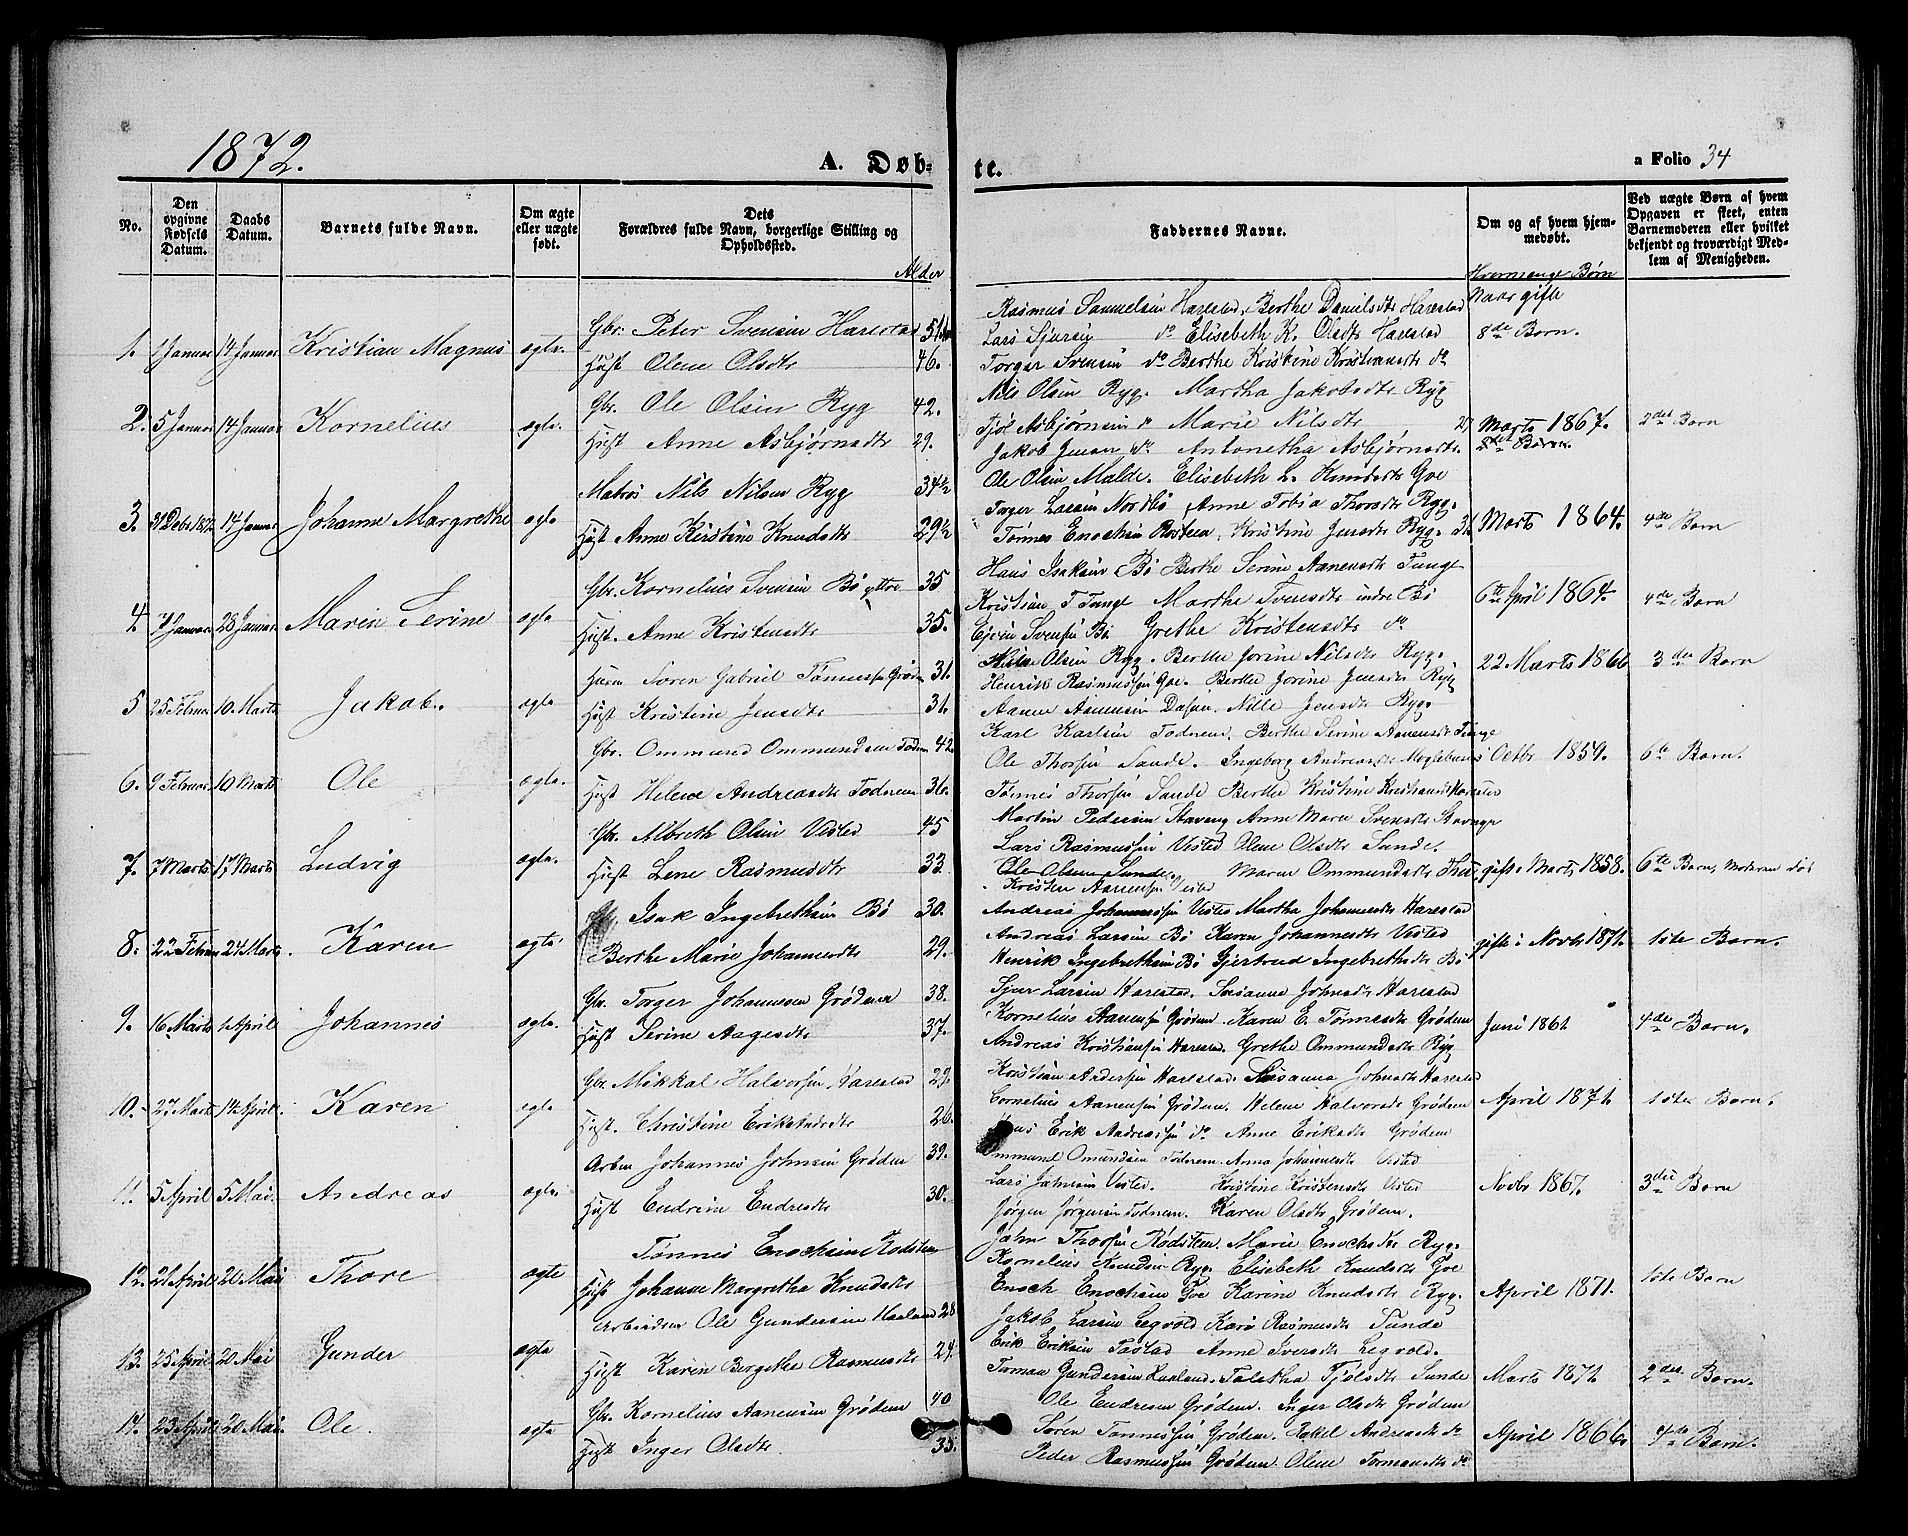 1872.
A. Døb-
te.
a Folio 34
No.
Den opgivne Fødsels Datum.
Daabs Datum.
Barnets fulde Navn.
Om ægte eller uægte født.
Dets Forældres fulde Navn, borgerlige Stilling og Opholdssted.
Alder
Faddernes Navne.
Om og af hvem hjemmedøbt.
Hvormange Børn
Naar gifte
Ved uægte Børn af hvem Opgaven er skeet, enten Barnemoderen eller hvilket bekjendt og troværdigt Medlem af Menigheden.
Rasmus Samuelsen Harestad, Berthe Danielsdtr Harestad
Gbr. Peter Svensen Harestad 51
Lars Sjursen do Elisabeth K. Olsdtr Harestad 8de Barn.
1. 1 Januar 14 Januar Kristian Magnus ægte.
Hust Olene Olsdtr 46. Torger Svensen do Berthe Kristine Kristiansdtr do
Gbr. Ole Olsen Ryg 42. Nils Olsen Ryg. Martha Jakobsdtr Ryg
2. 5 Januar 14 Januar Kornelius ægte. Tjøl Asbjørnsen do Marie Nilsdtr 27 Marts 1867. 2det Barn
Hust Anne Asbjørnsdtr 29. Jakob Jensen do Antonetha Asbjørnsdtr.
Matros Nils Nilsen Ryg 34½ Ole Olsen Malde. Elisebeth L. Knudsdtr Goe
3. 31 Decbr 1871 14 Januar Johanne Margrethe ægte Torger Larsen Nordbø Anne Tobia Thorsdtr Ryg.
Hust Anne Kirstine Knudsdtr 29½ Tønnes Enochsen Rosteen, Kristine Jensdtr Ryg. 31 Marts 1864. 4de Barn
Gbr. Kornelius Svensen Bø yttre 35 Hans Isaksen Bø Berthe Serine Aanensdtr Tunge
4. 7 Januar 28 Januar Maren Serine ægte Kristian T Tunge Martha Svensdtr indre Bø 6te April 1864. 4de Barn
Hust. Anne Kristensdtr 35. Ejvin Svensen Bø Grethe Kristensdtr do
Nils Olsen Ryg. Berthe Jorine Nilsdtr Ryg.
Søren Gabriel Tønnessen Grødem 31. Henrik Rasmussen Goe. Berthe Jorine Jensdtr Ryg 22 Marts 1866 3die Barn
5 25 Februar 10 Marts Jakob. ægte
Hust Kristine Jensdtr 31. Aanen Aanensen Nille Jensdtr Ryg.
Gbr. Ommund Ommundsen Todnem 42 Karl Karlsen Todnem. Berthe Serine Aanensdtr Tunge
6. 9 Februar 10 Marts Ole ægte. Ole Thorsen Sande. Ingeborg Andreasdtr Octbr 1859. 6te Barn.
Hust Helene Andreasdtr Todnem 36. Tønnes Thorsen Sande Berthe Kristine
Gbr. Albreth Olsen Visted 45 Martin Pedersen Stavang Anne Marie Svensdtr Stavange
7. 7 Marts 17 Marts Ludvig ægte. Lars Rasmussen Visted Olene Olsdtr Sunde.
Hust Lene Rasmusdtr 33 Ole Olsen Sunde Maren Ommundsdtr gifte Marts 1858. 6te Barn, Moderen død
Kristen Aanensen Visted
Isak Ingebrethsen Bø 30. Andreas Johannessen Visted Martha Johannesdtr Harestad
8. 22 Februar 24 Marts Karen ægte. Andreas Larsen Bø Karen Johannesdtr Visted gifte i Novbr 1871. 1ste Barn.
Berthe Marie Johannesdtr 29. Henrik Ingebrethsen Bø Gjertrud Ingebrethsdtr Bø
Gbr. Torger Johannessen Grødem 38. Sjur Larsen Harestad. Susanne Johnsdtr Harestad
9. 16 Marts 1 April Johannes ægte. Kornelius Aanensen Grødem. Karen E. Tønnesdtr Grødem Juni 1861 4de Barn.
Hust Serine Aagesdtr 37. Andreas Kristiansen Harestad. Grethe Ommundsdtr Ryg
Gbr Mikkal Halvorsen Harestad 29. Kristian Andersen Harestad. Susanna Johnsdtr Harestad
10. 27 Marts 14 April. Karen ægte Cornelius Aanensen Grødem. Helene Halvorsdtr Grødem April 1871. 1ste Barn.
Hust. Christine Eriksdtr 26. Erik Andreassen do Anne Eriksdtr Grødem
Arben Johannes Johnsen Grødem 39. Ommund Omundsen Todnem. Anna Johannesdtr Visted
11. 5 April 5 Mai. Andreas ægte. Lars Johnsen Visted. Kristine Kristensdtr Visted Novbr 1867. 3die Barn
Hust Endrine Endresdtr 30. Jørgen Jørgensen Todnem. Karen Olsdtr Grødem.
Tønnes Enochsen Rodsteen John Thorsen Rødsteen. Marie Enochsdtr Ryg.
12. 21 April 20 Mai Thore ægte Kornelius Knudsen Ryg. Elisebeth Knudsdtr Goe 1ste Barn
Hust Johanne Margretha Knudsdtr Enoch Enochsen Goe Karine Knudsdtr Ryg. April 1871.
Arbeidsm Ole Gundersen Haaland 28 Jakob Larsen Legvold Kari Rasmusdtr Sunde
13. 25 April 20 Mai Gunder ægte Erik Eriksen Tastad Anne Iversdtr Legvold.
Hust Karen Bergitha Rasmusdtr 24. Tormon Gundersen Haaland. Taletha Tjølsdtr Sunde Marts 1871 2det Barn.
Gbr. Kornelius Aanensen Grødem 40 Ole Endresen Grødem. Inger Olsdtr Grødem
14. 23 April 20 Mai. Ole. ægte Søren Tønnessen Grødem. Rakel Andreasdtr do April 1866. 4de Barn.
Hust Inger Olsdtr. 35. Peder Rasmussen Grødem. Olene Tormansdtr do